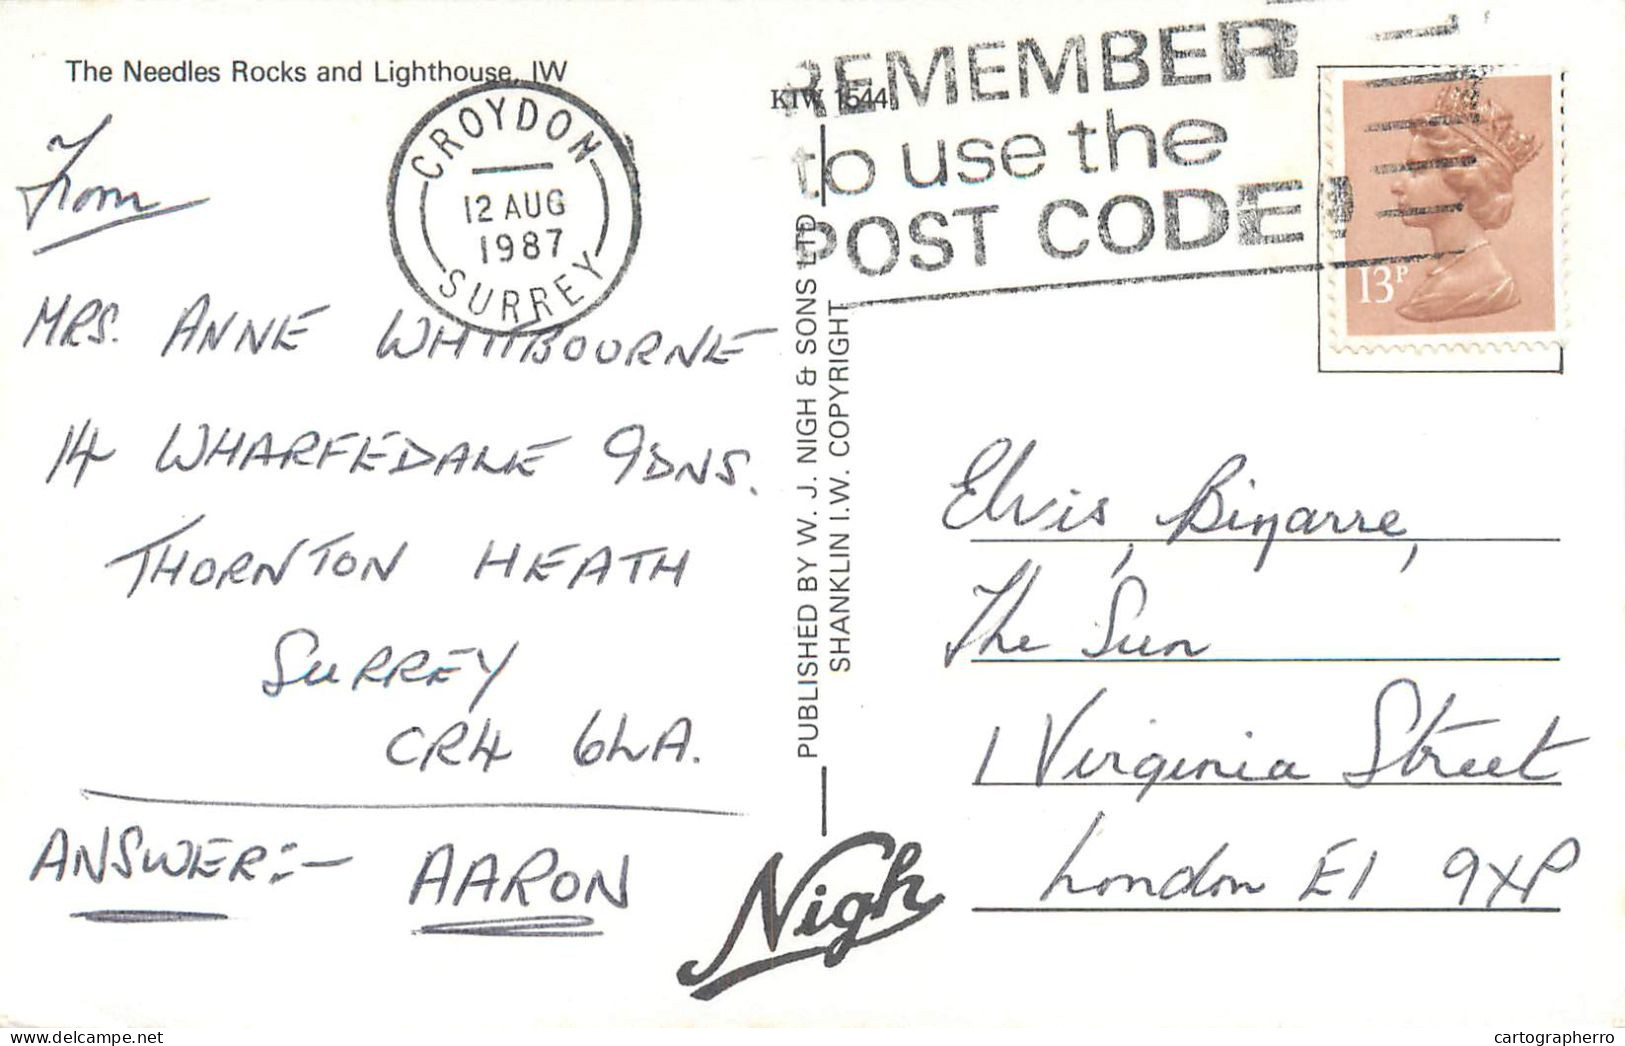 The Needles Rocks and Lighthouse, IW
KIW 1544
REMEMBER
to use the
POST CODE!
CROYDON
12 AUG
1987
SURREY
13P
From
MRS. ANNE WHITBOURNE
14 WHARFEDALE GDNS.
THORNTON HEATH
SURREY
CR4 6LA.
ANSWER:- AARON
PUBLISHED BY W. J. NIGH & SONS LTD
SHANKLIN I.W. COPYRIGHT
Nigh
Elvis, Bizarre,
The Sun
1 Virginia Street
London E1 9XP
cartographerro